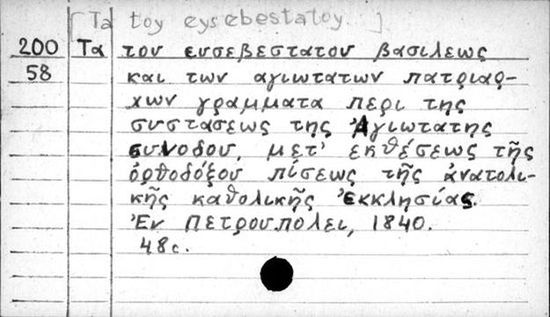 [Ta toy eysebestatoy...]
200 Τα του ευσεβεστατου βασιλεως
58 και των αγιωτατων πατριαρ-
χων γραμματα περι της
συστασεως της Ἁγιωτατης
συνοδου, μετ' εκθέσεως τῆς
ὀρθοδόξου πίσεως τῆς ἀνατολι-
κῆς καθολικῆς Ἐκκλησίας.
Ἐν Πετρουπολει, 1840.
48с.